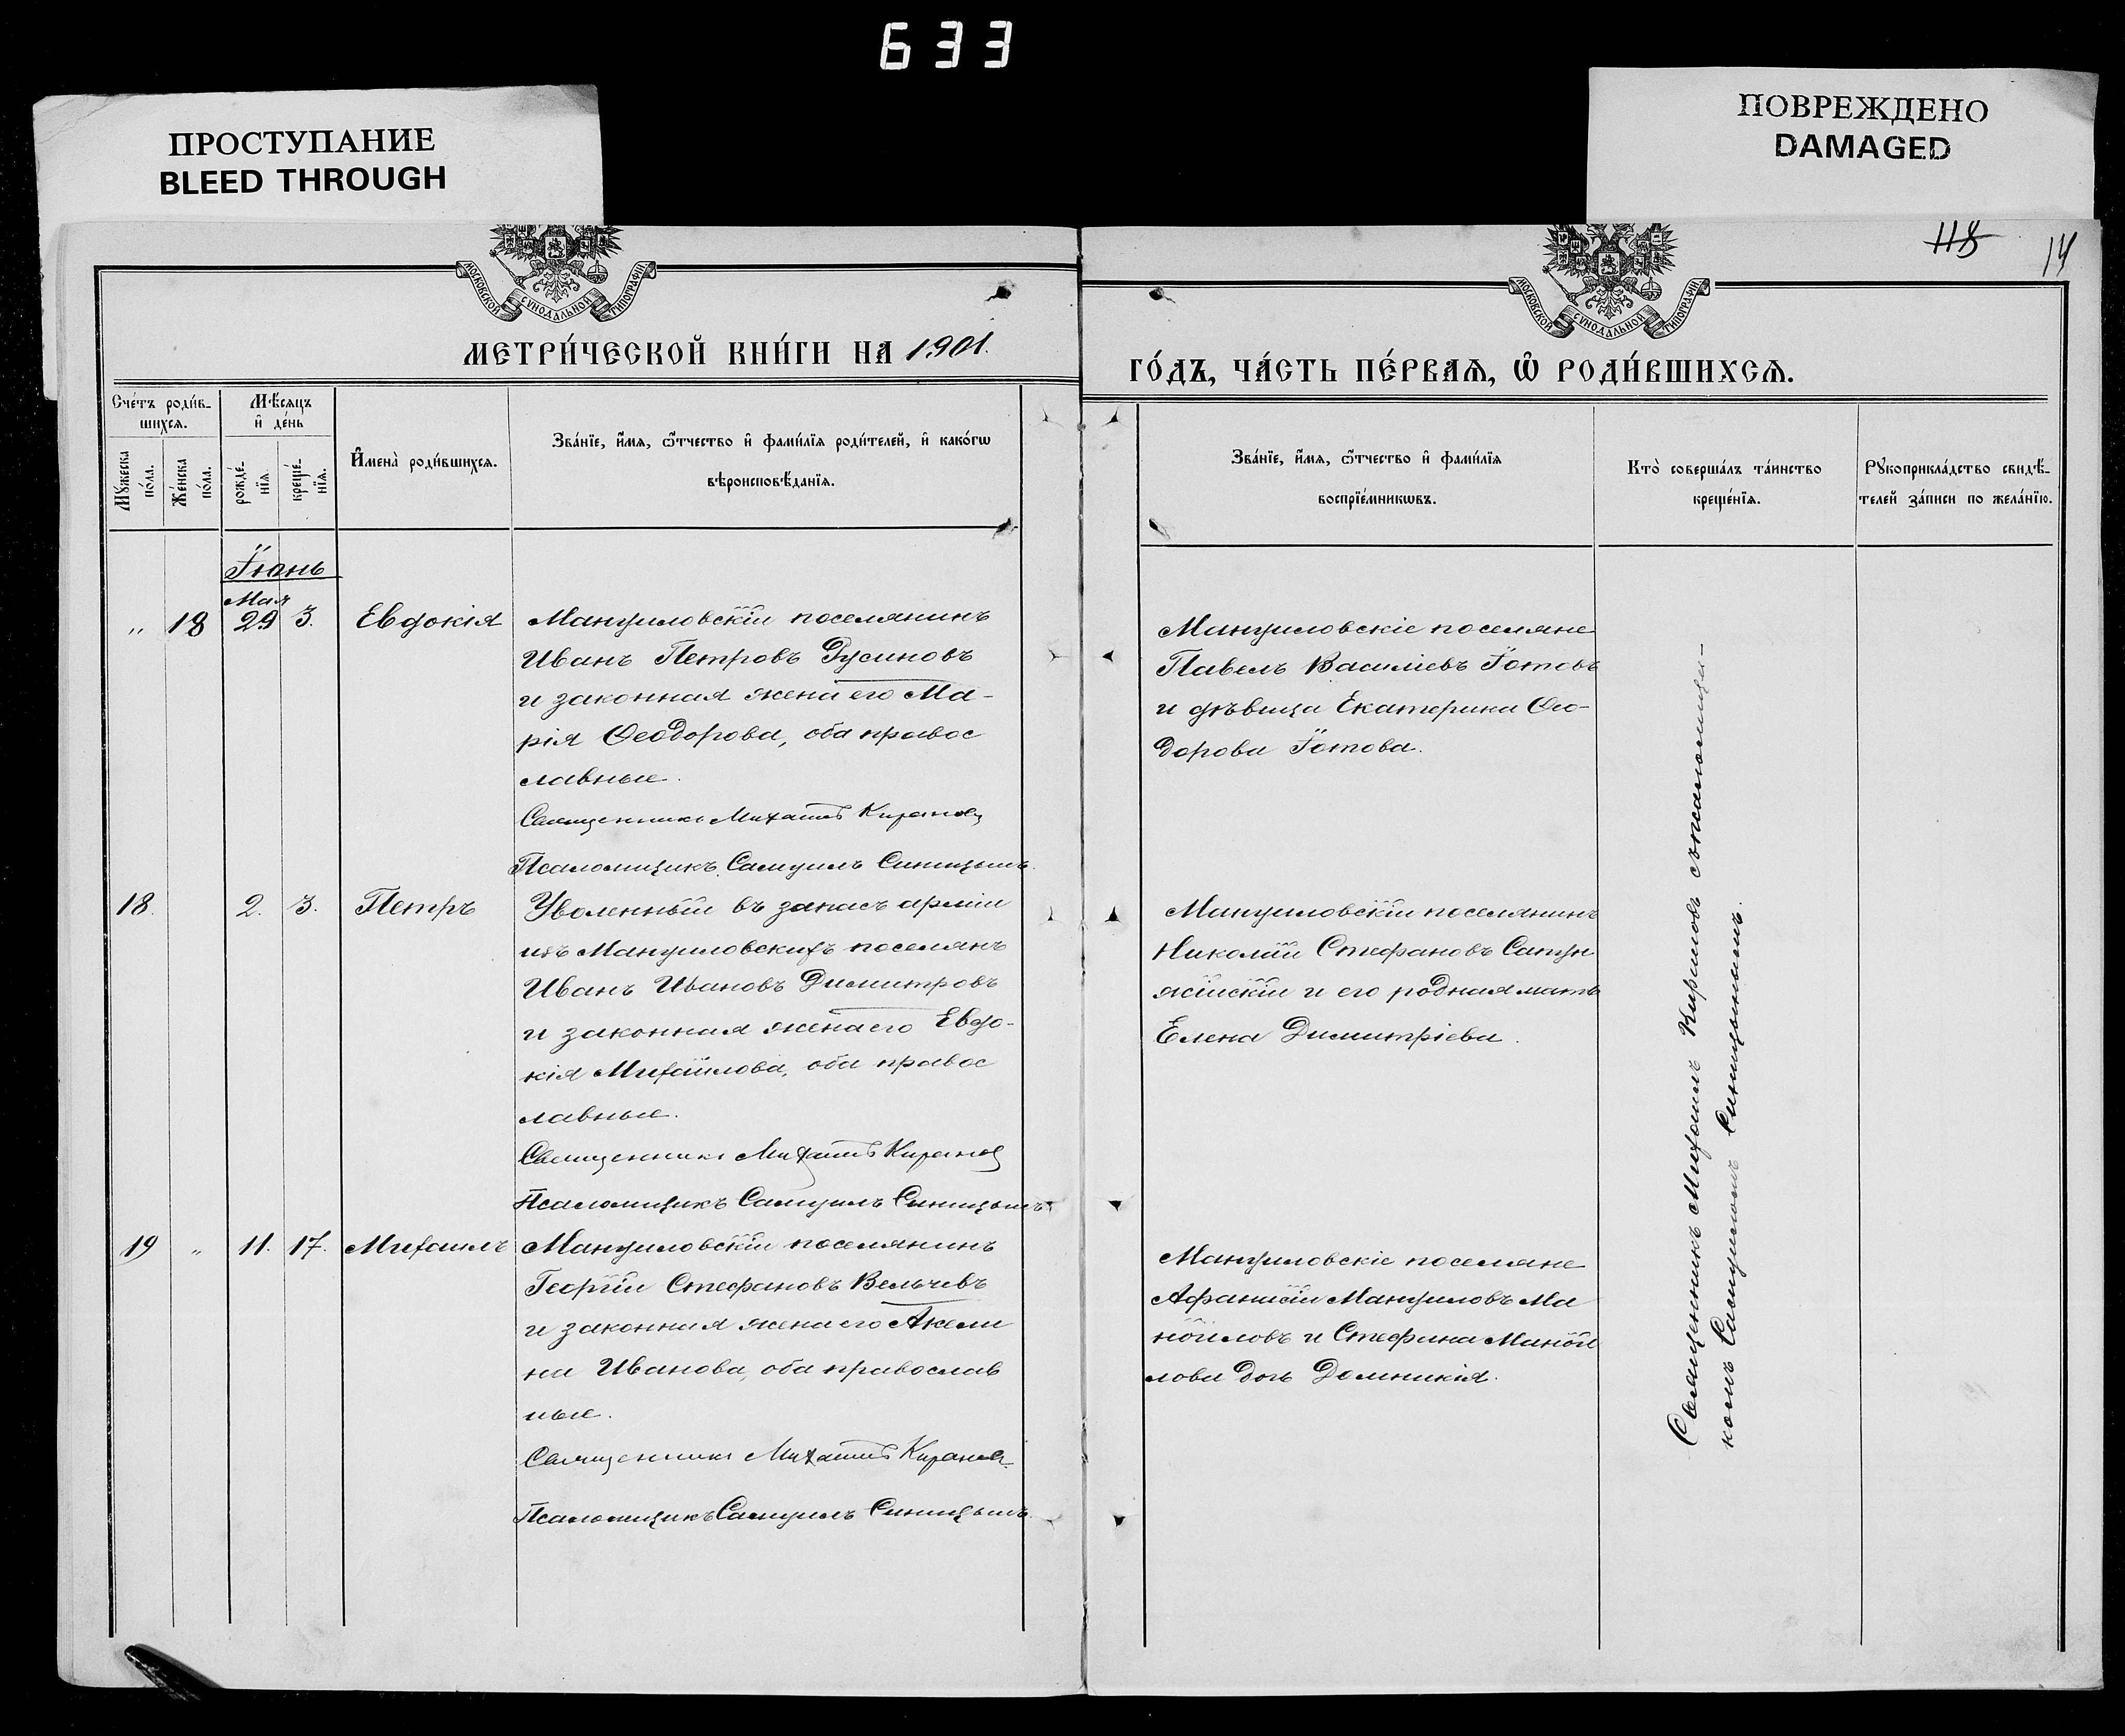 633
ПРОСТУПАНИЕ
BLEED THROUGH
ПОВРЕЖДЕНО
DAMAGED
118
14
МОСКОВСКОЙ СѴНОДАЛЬНОЙ ТИПОГРАФІИ
МОСКОВСКОЙ СѴНОДАЛЬНОЙ ТИПОГРАФІИ
МЕТРИ́ЧЕСКОЙ КНИ́ГИ НА 1901.
ГО́ДЪ, ЧА́СТЬ ПЕ́РВАѦ, Ѡ҆ РОДИ́ВШИХСѦ.
Сче́тъ роди́в-
шихсѧ.
Мꙋ́жеска
по́ла.
Же́нска
по́ла.
Мѣ́сѧцъ
и҆ де́нь
рожде́-
нїѧ.
креще́-
нїѧ.
И҆мена̀ роди́вшихсѧ.
Зва́нїе, и҆́мѧ, ѻ҆́тчество и҆ фами́лїѧ роди́телей, и҆ како́гѡ
вѣроисповѣ́данїѧ.
Зва́нїе, и҆́мѧ, ѻ҆́тчество и҆ фами́лїѧ
воспрїе́мникѡвъ.
Кто̀ соверша́лъ та́инство
креще́нїѧ.
Рꙋкоприкла́дство свидѣ́-
телей за́писи по жела́нїю.
Іюнь
Мая
„ 18 29 3. Евдокія
Мануиловскій поселянинъ
Иванъ Петровъ Русиновъ
и законная жена его Ма-
рія Ѳеодорова, оба правос
лавные.
Священникъ Михаилъ Кирановъ
Псаломщикъ Самуилъ Синицынъ.
Мануиловскіе поселяне
Павелъ Василіевъ Іотовъ
и дѣвица Екатерина Ѳео-
дорова Іотова.
18. 2. 3. Петръ
Уволенный въ запасъ арміи
изъ Мануиловскихъ поселянъ
Иванъ Ивановъ Димитровъ
и законная жена его Евдо-
кія Михайлова, оба правос
лавные.
Священникъ Михаилъ Кирановъ
Псаломщикъ Самуилъ Синицынъ
Мануиловскій поселянинъ
Николай Стефановъ Сапун
жійскій и его родная мать
Елена Димитріева.
19 „ 11. 17. Михаилъ
Мануиловскій поселянинъ
Георгій Стефановъ Вельчевъ
и законная жена его Акели
на Иванова, оба православ
ные.
Священникъ Михаилъ Кирановъ
Псаломщикъ Самуилъ Синицынъ.
Мануиловскіе поселяне
Афанасій Мануиловъ Ма
нойловъ и Стефана Маной
лова дочь Домникія.
Священникъ Михаилъ Кирановъ съ псаломщи-
комъ Самуиломъ Синицынымъ.